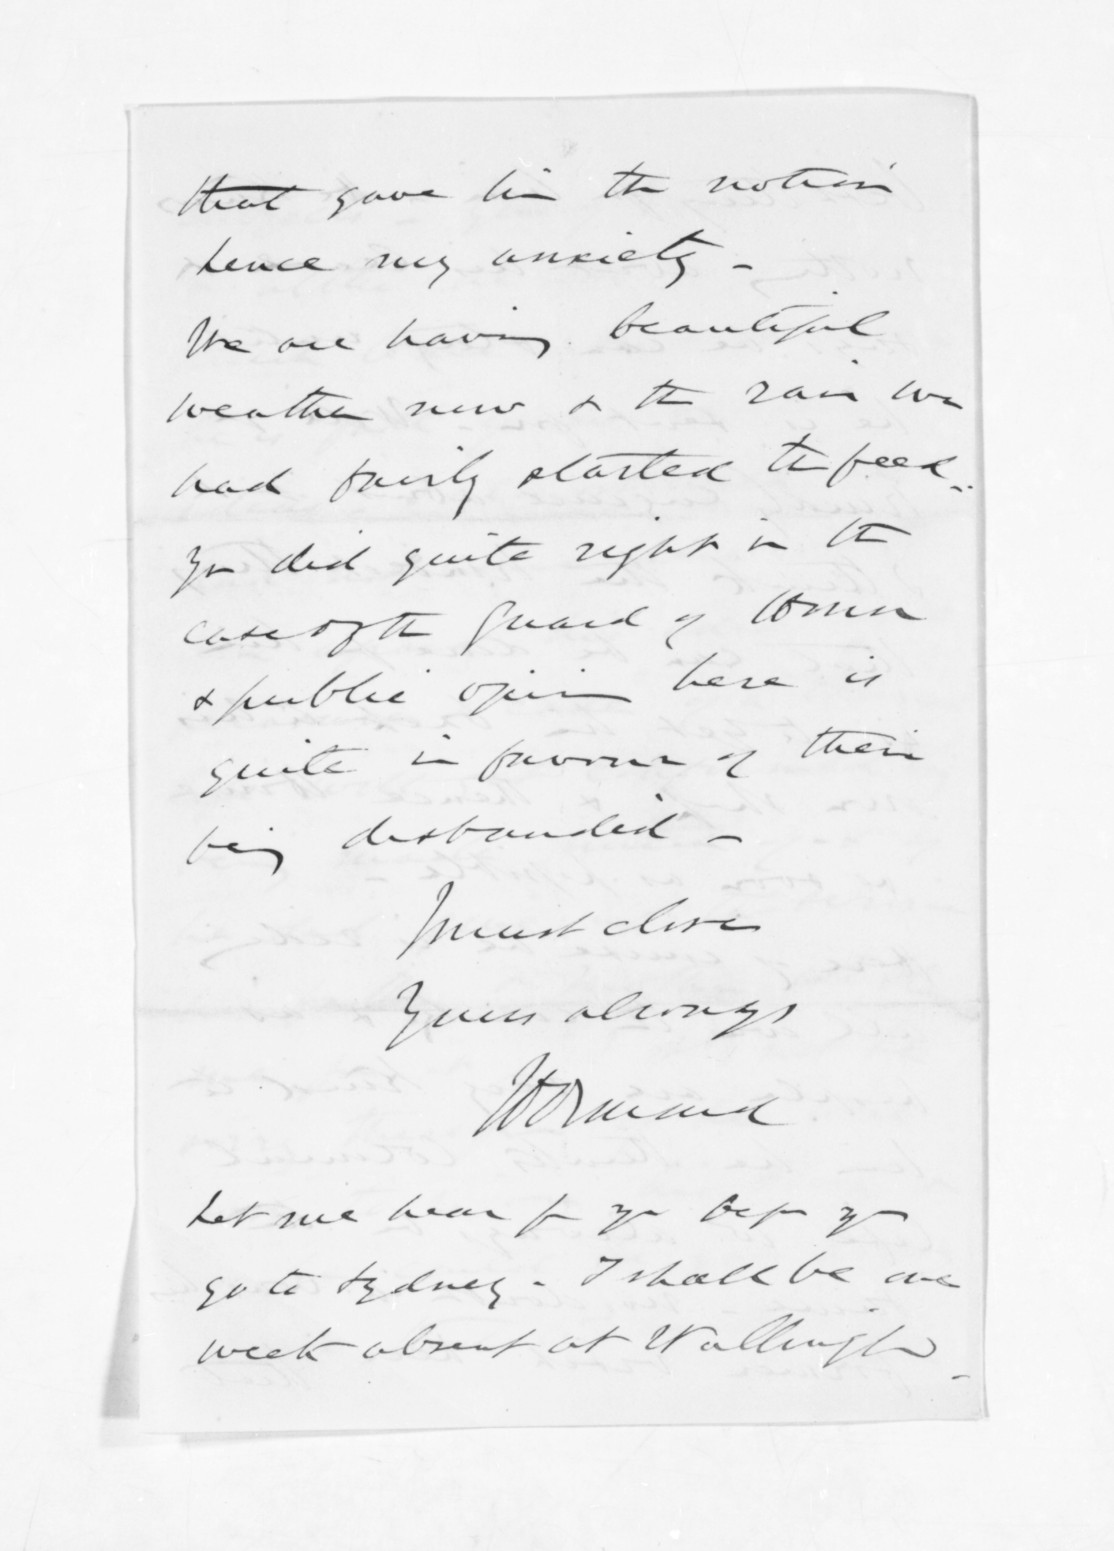 that gave him the notion
hence my anxiety -
We are having beautiful
weather now & the rain we
had fairly started the feed.
You did quite right in the
case of the Guard of Honor
& public opinion here is
quite in favour of their
being disbanded -
I must close
Yours always
JD Ormond
Let me hear fr you before you
go to Sydney - I shall be one
week absent at Wellington -